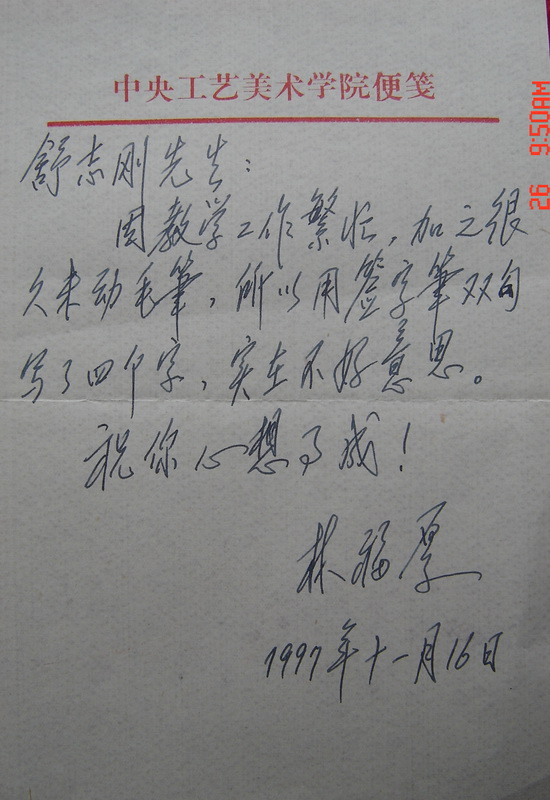 中央工艺美术学院便笺
舒志刚先生：
因教学工作繁忙，加之很
久未动毛筆，所以用签字筆双勾
写了四个字，实在不好意思。
祝你心想事成！
林福厚
1997年十一月16日
26 9:50AM